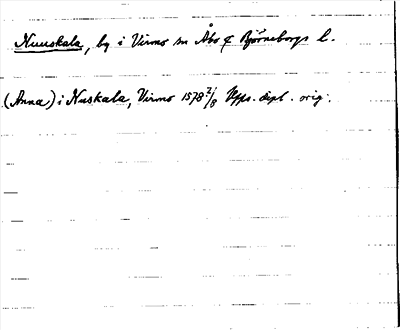 Nuuskala, by i Virmo sn Åbo & Björneborgs l.
(Anna) i Nuskala, Virmo 1578 2/8 Upps. dipl. orig.